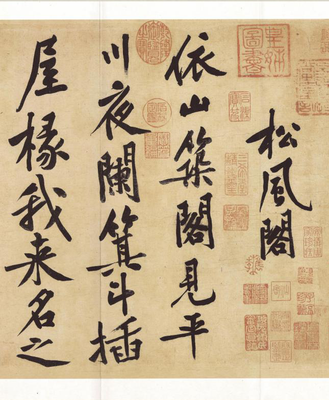 松風閣
依山築閣見平
川夜闌箕斗插
屋椽我来名之